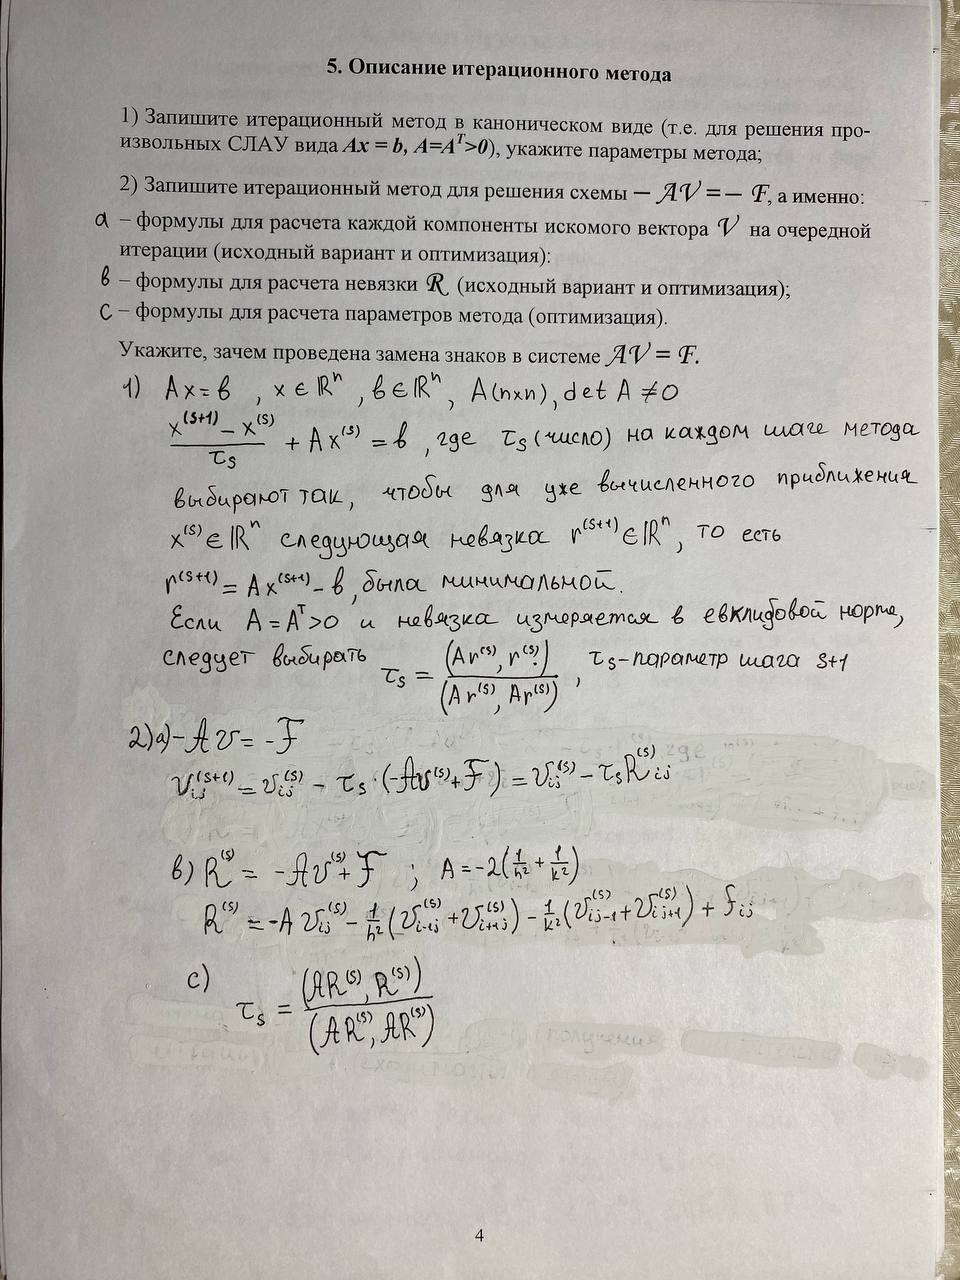 5. Описание итерационного метода
1) Запишите итерационный метод в каноническом виде (т.е. для решения про-
извольных СЛАУ вида Ax = b, A=Aᵀ>0), укажите параметры метода;
2) Запишите итерационный метод для решения схемы – AV = – F, а именно:
a – формулы для расчета каждой компоненты искомого вектора V на очередной
итерации (исходный вариант и оптимизация):
в – формулы для расчета невязки R (исходный вариант и оптимизация);
c – формулы для расчета параметров метода (оптимизация).
Укажите, зачем проведена замена знаков в системе AV = F.
1) Ax = в , x ∈ ℝⁿ , в ∈ ℝⁿ, A(n×n), det A ≠ 0
(x^(s+1) - x^(s))/τs + Ax^(s) = в, где τs (число) на каждом шаге метода
выбирают так, чтобы для уже вычисленного приближения
x^(s) ∈ ℝⁿ следующая невязка r^(s+1) ∈ ℝⁿ, то есть
r^(s+1) = Ax^(s+1) - в, была минимальной.
Если A = Aᵀ>0 и невязка измеряется в евклидовой норме,
следует выбирать τs = (Ar^(s), r^(s))/(Ar^(s), Ar^(s)), τs - параметр шага s+1
2)а) -Av = -F
v_ij^(s+1) = v_ij^(s) - τs·(-Av^(s) + F) = v_ij^(s) - τs R_ij^(s)
в) R^(s) = -Av^(s) + F ; A = -2(1/h² + 1/k²)
R^(s) = -A v_ij^(s) - 1/h²(v_i-1j^(s) + v_i+1j^(s)) - 1/k²(v_ij-1^(s) + v_ij+1^(s)) + f_ij
c)
τs = (AR^(s), R^(s))/(AR^(s), AR^(s))
4